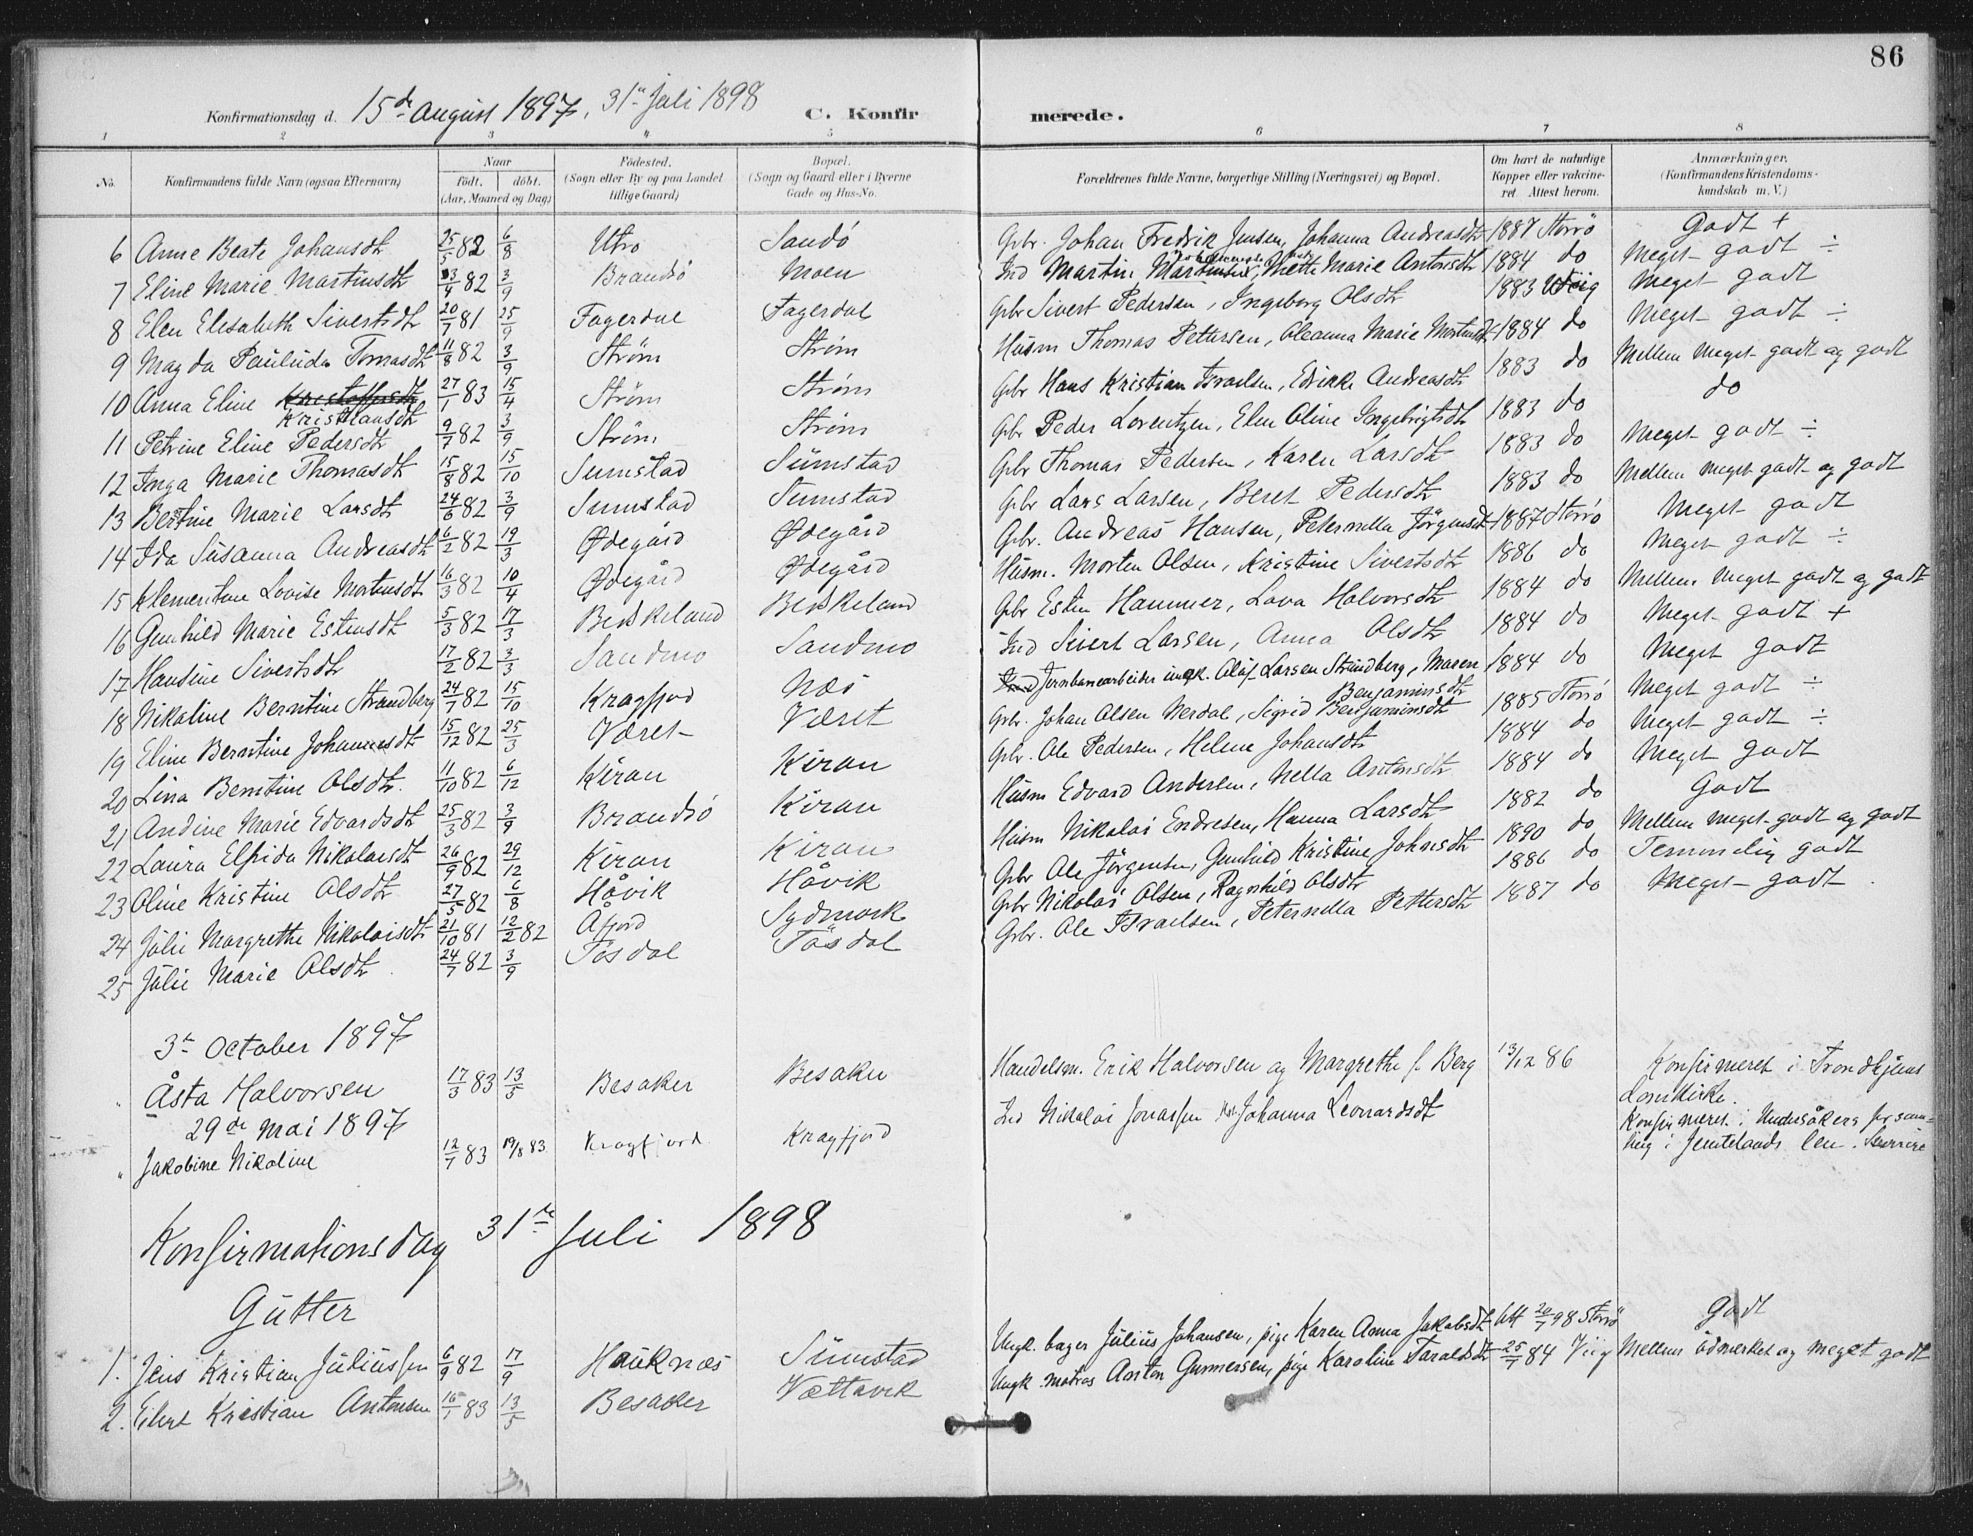 86
Konfirmationsdag d. 15de August 1897, 31te Juli 1898 C. Konfirmerede.
1 2 3 4 5 6 7 8
No. Konfirmandens fulde Navn (ogsaa Efternavn) Naar født. døbt. (Aar, Maaned og Dag) Fødested. (Sogn eller By og paa Landet tillige Gaard) Bopæl. (Sogn og Gaard eller i Byerne Gade og Hus-No. Forældrenes fulde Navne, borgerlige Stilling (Næringsvei) og Bopæl. Om havt de naturlige Kopper eller vaccineret. Attest herom. Anmærkninger. (Konfirmandens Kristendomskundskab m. V.)
6 Anne Beate Johansdtr 25/5 82 6/8 Utro Sandö Gbr. Johan Fredrik Jensen, Johanna Andreasdtr 1887 Storrö Godt +
7 Eline Marie Martinsdtr 3/4 82 3/9 Brandsö Moen Ind Martin Mette Marie Antonsdtr 1884 do Meget godt ÷
8 Elen Elisabeth Sivertsdtr 20/7 81 25/9 Fagerdal Fagerdal Gbr Sivert Pedersen, Ingeborg Olsdtr 1883 Meget godt
9 Magda Paulude Tomasdtr 11/8 82 3/9 Strøm Strøm Husm Thomas Pettersen, Oleanna Marie 1884 do Meget godt ÷
10 Anna Eline Kristiansdtr 27/1 83 15/4 Strøm Strøm Gbr Hans Kristian Israelsen, Edrikke Andreasdtr 1883 do Mellem meget godt og godt
11 Petrine Eline Pedersdtr 9/7 82 3/9 Strøm Strøm Gbr Peder Lorentzen, Elen Oline Ingebrigtsdtr 1883 do do
12 Inga Marie Thomasdtr 15/8 82 15/10 Sumstad Sumstad Gbr Thomas Pedersen, Karen Larsdtr 1883 do Meget godt ÷
13 Bertine Marie Larsdtr 24/6 82 3/9 Sumstad Sumstad Gbr Lars Larsen, Beret Pedersdtr 1883 do Mellem meget godt og godt
14 Ida Susanna Andreasdtr 6/2 82 19/3 Ødegård Ødegård Gbr. Andreas Hansen, Peternella Jörgensdtr 1887 Storrö Meget godt
15 Klementine Lovise Mortensdtr 16/3 82 10/4 Ødegård Ødegård Husm. Morten Olsen, Kristine Sivertsdtr 1886 do Meget godt ÷
16 Gunhild Marie Estensdtr 5/3 82 17/3 Beskeland Beskeland Gbr Esten Hammer, Lava Halvorsdtr 1884 do Mellem meget godt og godt
17 Hansine Sivertsdtr 17/2 82 3/3 Sandmo Sandmo Ind Sivert Larsen, Anna Olsdtr 1884 do Meget godt +
18 Nikoline Berntine Strandberg 24/7 82 15/10 Kragfjord Næs Jernbanearbeider ungk. Oluf Larsen Strandberg, Maren Benjaminsdtr 1884 do Meget godt
19 Eline Berntine Johannesdtr 15/12 82 25/3 Været Været Gbr. Johan Olsen Nerdal, Sigrid Benjaminsdtr 1885 Storrö Meget godt ÷
20 Lina Berntine Olsdtr. 11/10 82 6/12 Kiran Kiran Gbr. Ole Pedersen, Helene Johansdtr 1884 do Meget godt ÷
21 Andine Marie Edvardsdtr 25/3 82 3/9 Brandsö Kiran Husm Edvard Andersen, Nella Antonsdtr 1884 do Meget godt
22 Laura Elfrida Nikolaisdtr 26/9 82 29/12 Kiran Kiran Husm Nikolai Endresen, Hanna Larsdtr 1882 do Godt
23 Oline Kristine Olsdtr 27/5 82 6/8 Håvik Håvik Gbr Ole Jörgensen, Gunhild Kristine Johnsdtr 1890 do Mellem meget godt og godt
24 Julie Margrethe Nikolaisdtr 21/10 81 12/2 82 Åfjord Sydmark Gbr Nikolai Olsen, Ragnhild Olsdtr 1886 do Temmelig godt
25 Julie Marie Olsdtr 24/7 82 3/9 Tösdal Tösdal Gbr. Ole Israelsen, Peternella Pettersdtr 1887 do Meget godt
3te October 1897
" Åsta Halvorsen 17/3 83 13/5 Besaker Besaker Handelsm. Erik Halvorsen og Margrethe f. Berg 13/12 86 Konfirmeret i Trondhjems Domkirke.
29de Mai 1897
" Jakobine Nikoline 12/7 83 19/8 83 Kragfjord Kragfjord Ind Nikolai Jonassen Johanna Leonardsdtr Konfirmeret i Undersåkers forsamling i Jemtelands len.
Konfirmationsdag 31te Juli 1898
Gutter
1. Jens Kristian Juliussen 6/9 82 17/9 Hauknes Sumstad Ungk. bager Julius Johansen, pige Karen Anna Jakobsdtr Att 20/7 98 Storrö Godt
2. Eilert Kristian Antonsen 16/1 83 13/5 Besaker Vættavik Ungk. matros Anton Gunnersen, pige Karoline Taraldsdtr 25/7 84 Viig Mellem udmerket og meget godt